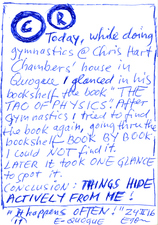 C R
Today, while doing
gymnastics @ Chris Hart
Chambers' house in
Quogue I glanced in his
bookshelf the book "THE
TAO OF PHYSICS". After
Gymnastics I tried to find
the book again, going thru the
bookshelf BOOK BY BOOK
I COULD NOT find it.
LATER it took ONE GLANCE
to spot it.
CONCLUSION: THINGS HIDE
ACTIVELY FROM ME!
"It happens OFTEN!"